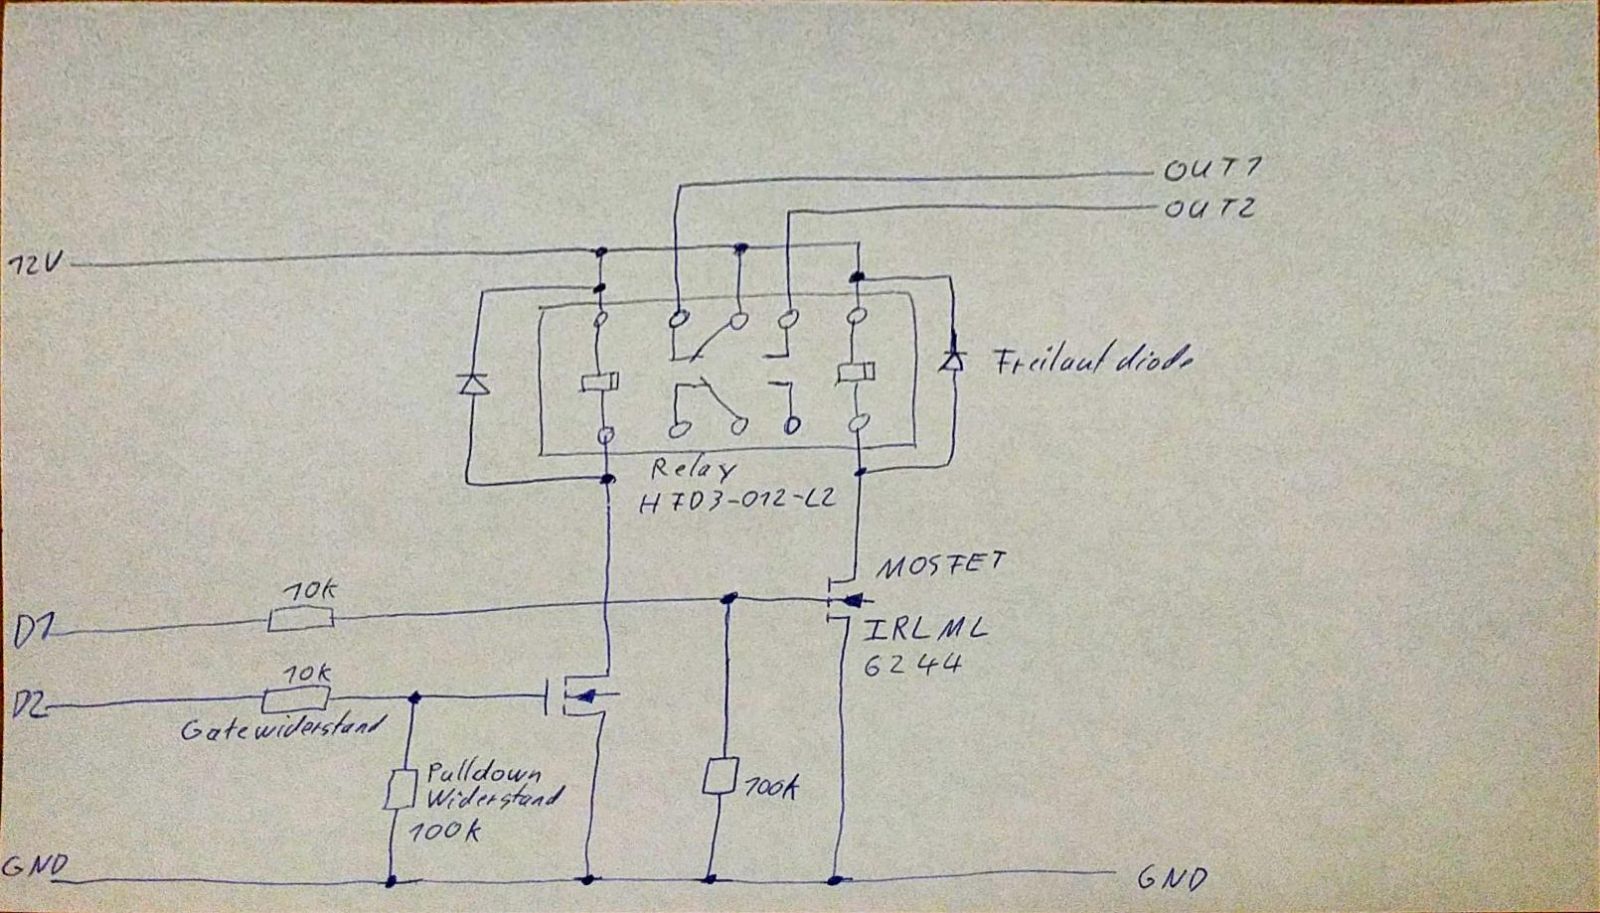 OUT1
OUT2
12V
Freilaufdiode
Relay
HFD3-012-L2
MOSFET
10k
D1
IRLML
6244
10k
D2
Gatewiderstand
Pulldown
Widerstand
100k
100k
GND
GND